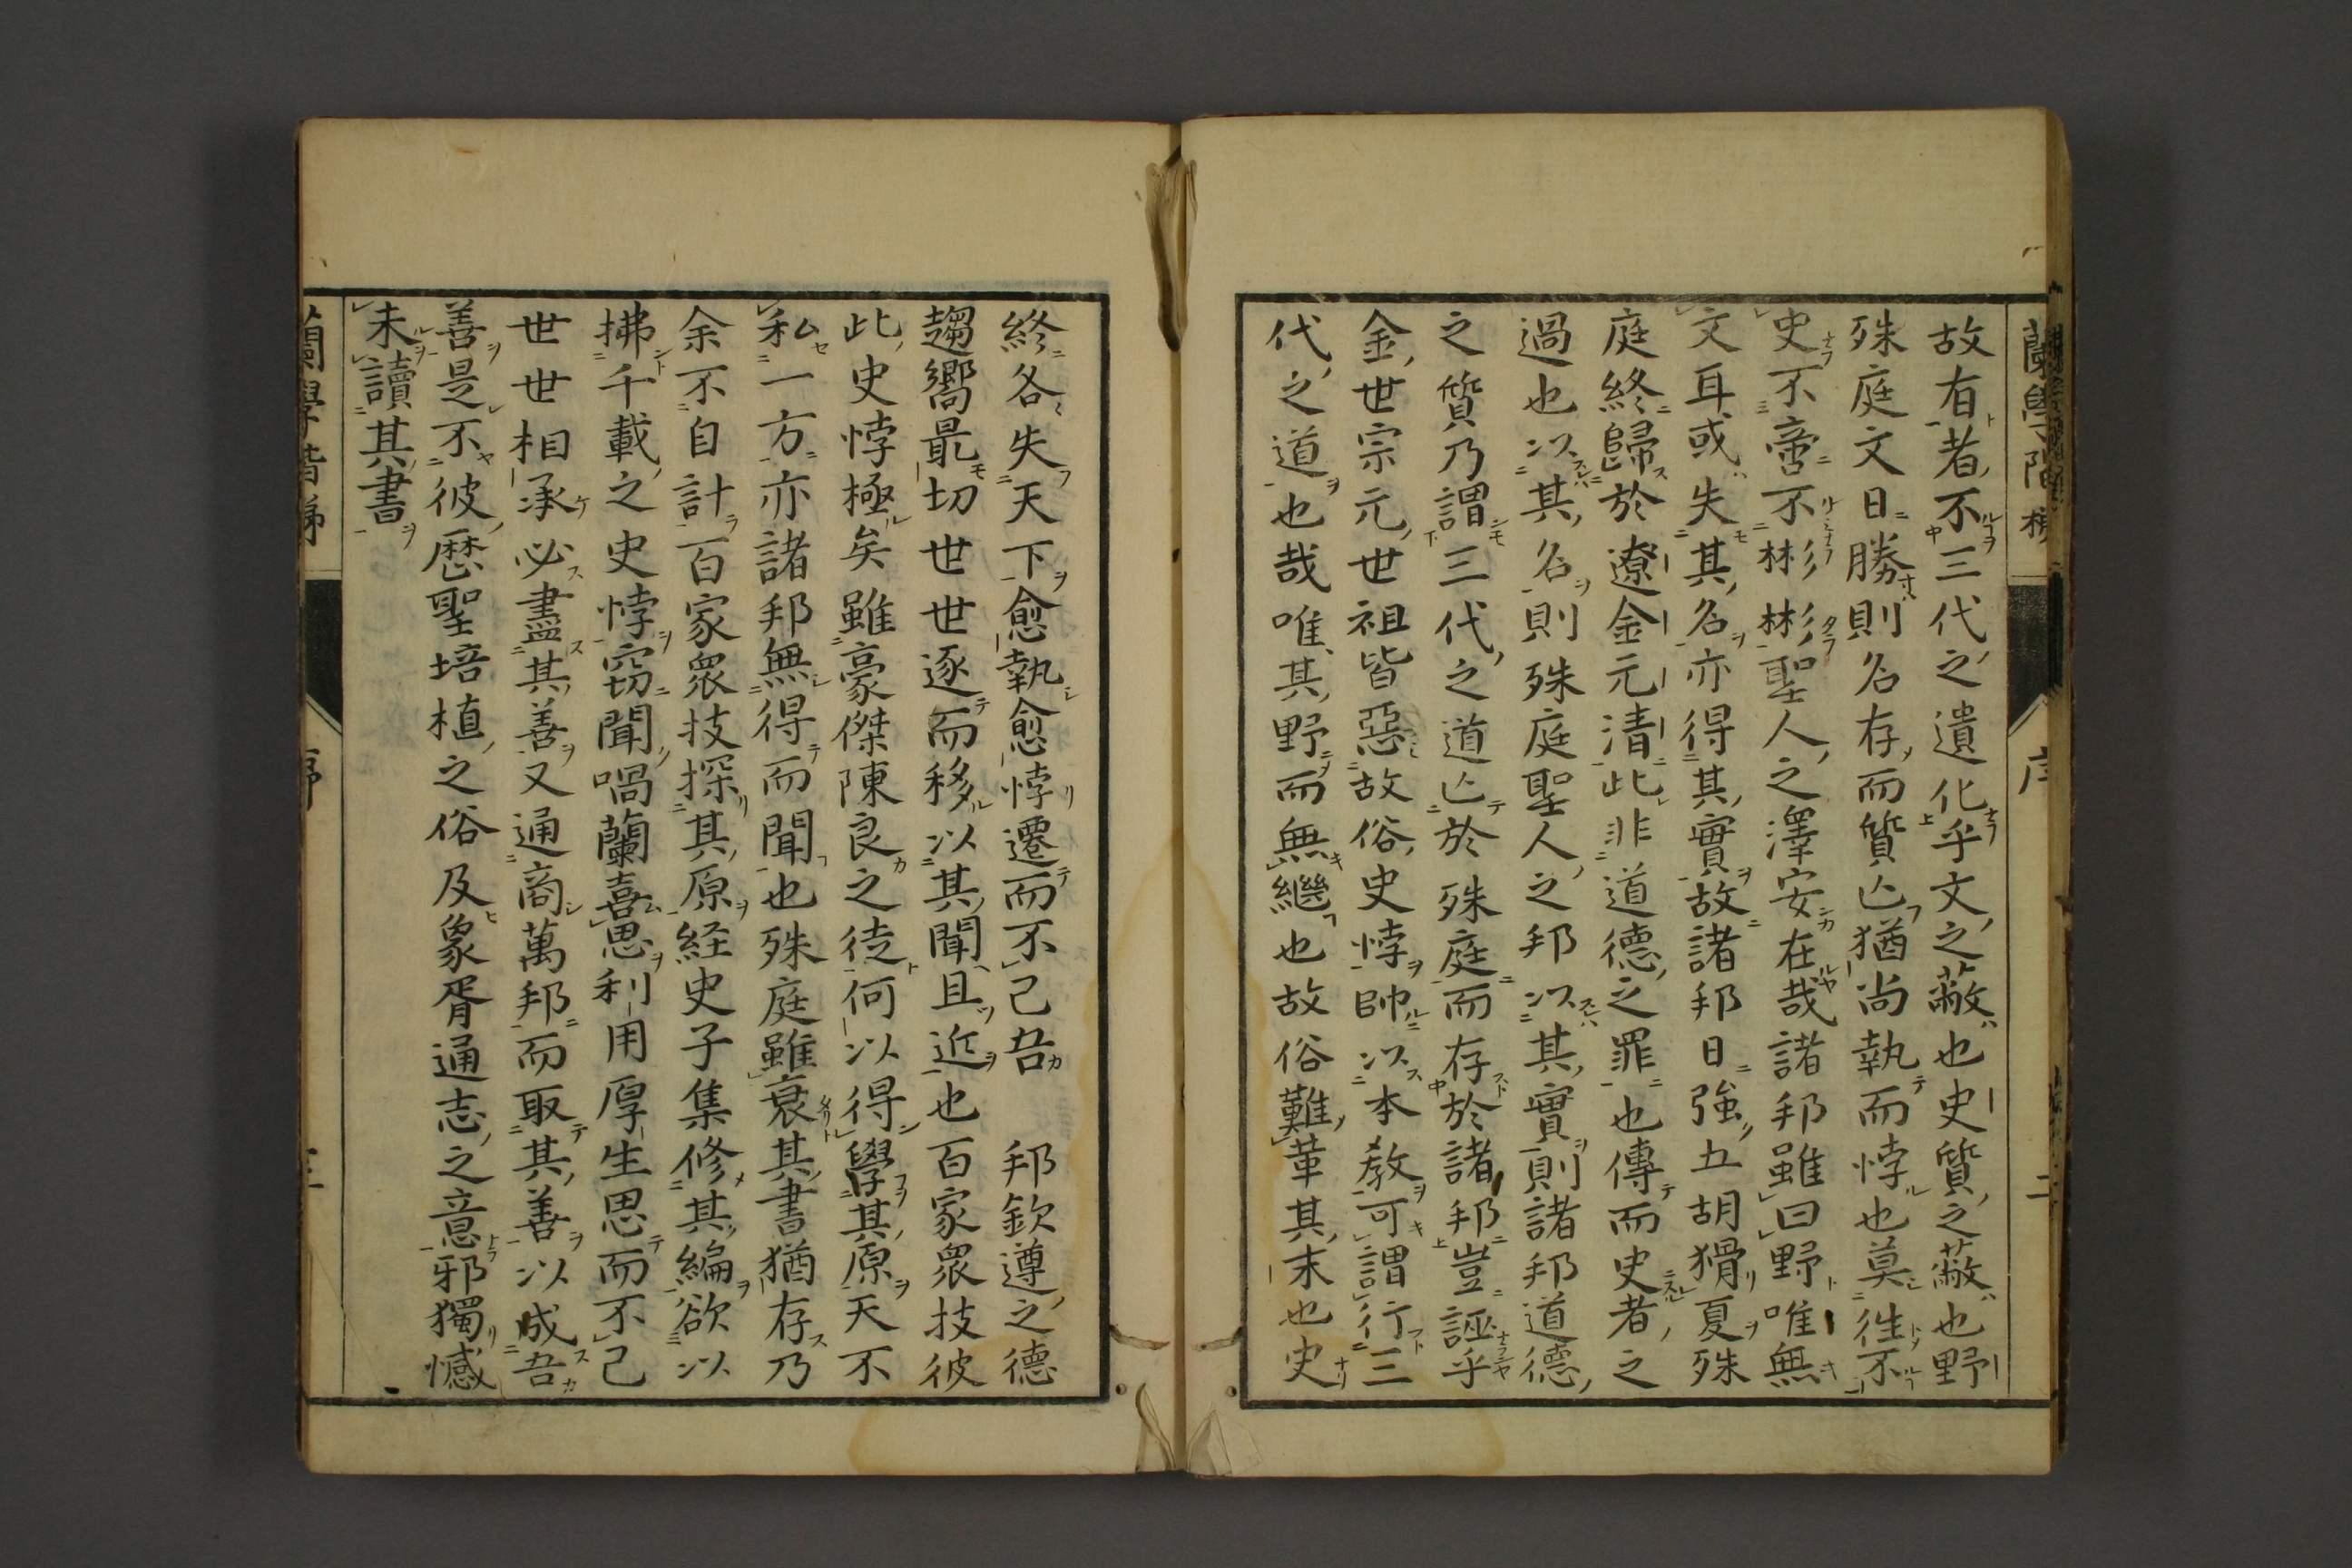 故有者不三代之遺化乎文之蔽也史質之蔽也野
殊庭文日勝則名存而質亾猶尚執而悖也莫徃不
史不啻不彬彬聖人之澤安在哉諸邦雖曰野唯無
文耳或失其名亦得其實故諸邦日強五胡猾夏殊
庭終歸於遼金元清此非道德之罪也傳而史者之
過也以其名則殊庭聖人之邦以其實則諸邦道德
之質乃謂三代之道亾於殊庭而存於諸邦豈誣乎
金世宗元世祖皆惡故俗史悖帥以本教可謂行三
代之道也哉唯其野而無繼也故俗難革其末也史
終各失天下愈執愈悖遷而不已吾 邦欽遵之德
趨嚮最切世世逐而移以其聞且近也百家衆技彼
此史悖極矣雖豪傑陳良之徒何以得學其原天不
私一方亦諸邦無得而聞也殊庭雖衰其書猶存乃
余不自計百家衆技探其原経史子集修其編欲以
拂千載之史悖窃聞喎蘭喜思利用厚生思而不已
世世相承必盡其善又通商萬邦而取其善以成吾
善是不彼歴聖培植之俗及象胥通志之意邪獨憾
未讀其書
蘭學階梯
序
二